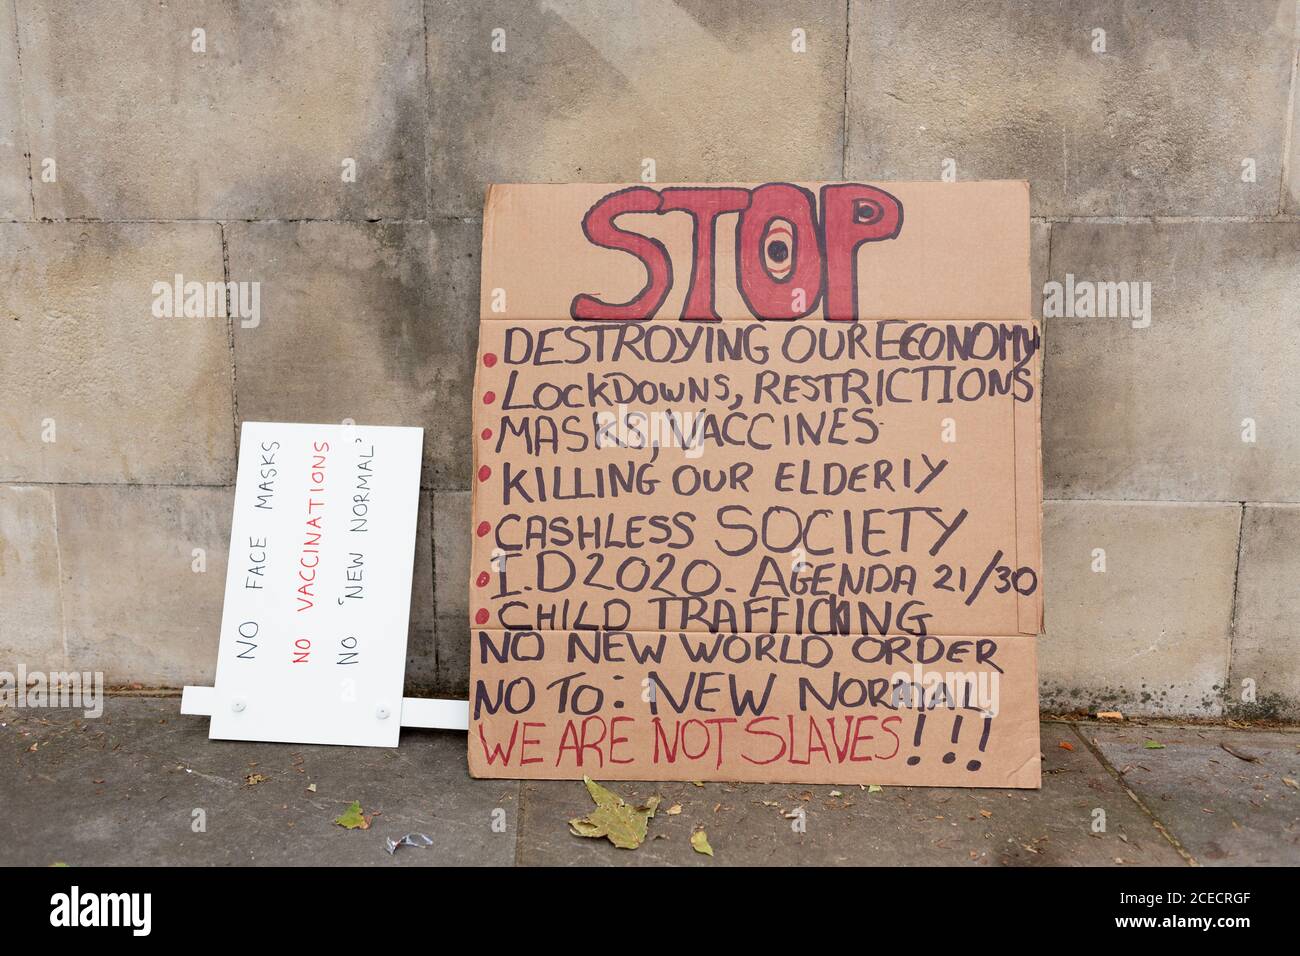 NO FACE MASKS
NO VACCINATIONS
NO 'NEW NORMAL'
STOP
• DESTROYING OUR ECONOMY
• LOCKDOWNS, RESTRICTIONS
• MASKS, VACCINES.
• KILLING OUR ELDERLY
• CASHLESS SOCIETY
• I.D 2020. AGENDA 21/30
• CHILD TRAFFICKING
NO NEW WORLD ORDER
NO TO: NEW NORMAL
WE ARE NOT SLAVES!!!
alamy
alamy
Image ID: 2CECRGF
www.alamy.com